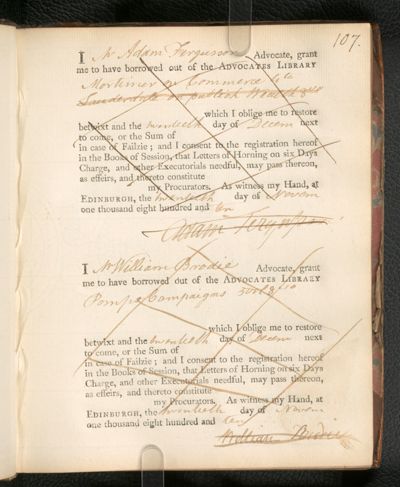 107.
I Mr Adam Ferguson Advocate, grant
me to have borrowed out of the ADVOCATES LIBRARY
Mortimer on Commerce 4to
Lauderdale on publick Wealth 8vo
which I oblige me to restore
betwixt and the twentieth day of Decem next
to come, or the Sum of
in case of Failzie; and I consent to the registration hereof
in the Books of Session, that Letters of Horning on six Days
Charge, and other Executorials needful, may pass thereon,
as effeirs, and thereto constitute
my Procurators. As witness my Hand, at
EDINBURGH, the twentieth day of Novem
one thousand eight hundred and ten
Adam Ferguson
I Mr William Brodie Advocate, grant
me to have borrowed out of the ADVOCATES LIBRARY
Pomps Campaigns 8vo
which I oblige me to restore
betwixt and the twentieth day of Decem next
to come, or the Sum of
in case of Failzie; and I consent to the registration hereof
in the Books of Session, that Letters of Horning on six Days
Charge, and other Executorials needful, may pass thereon,
as effeirs, and thereto constitute
my Procurators. As witness my Hand, at
EDINBURGH, the twentieth day of Novem
one thousand eight hundred and ten
William Brodie